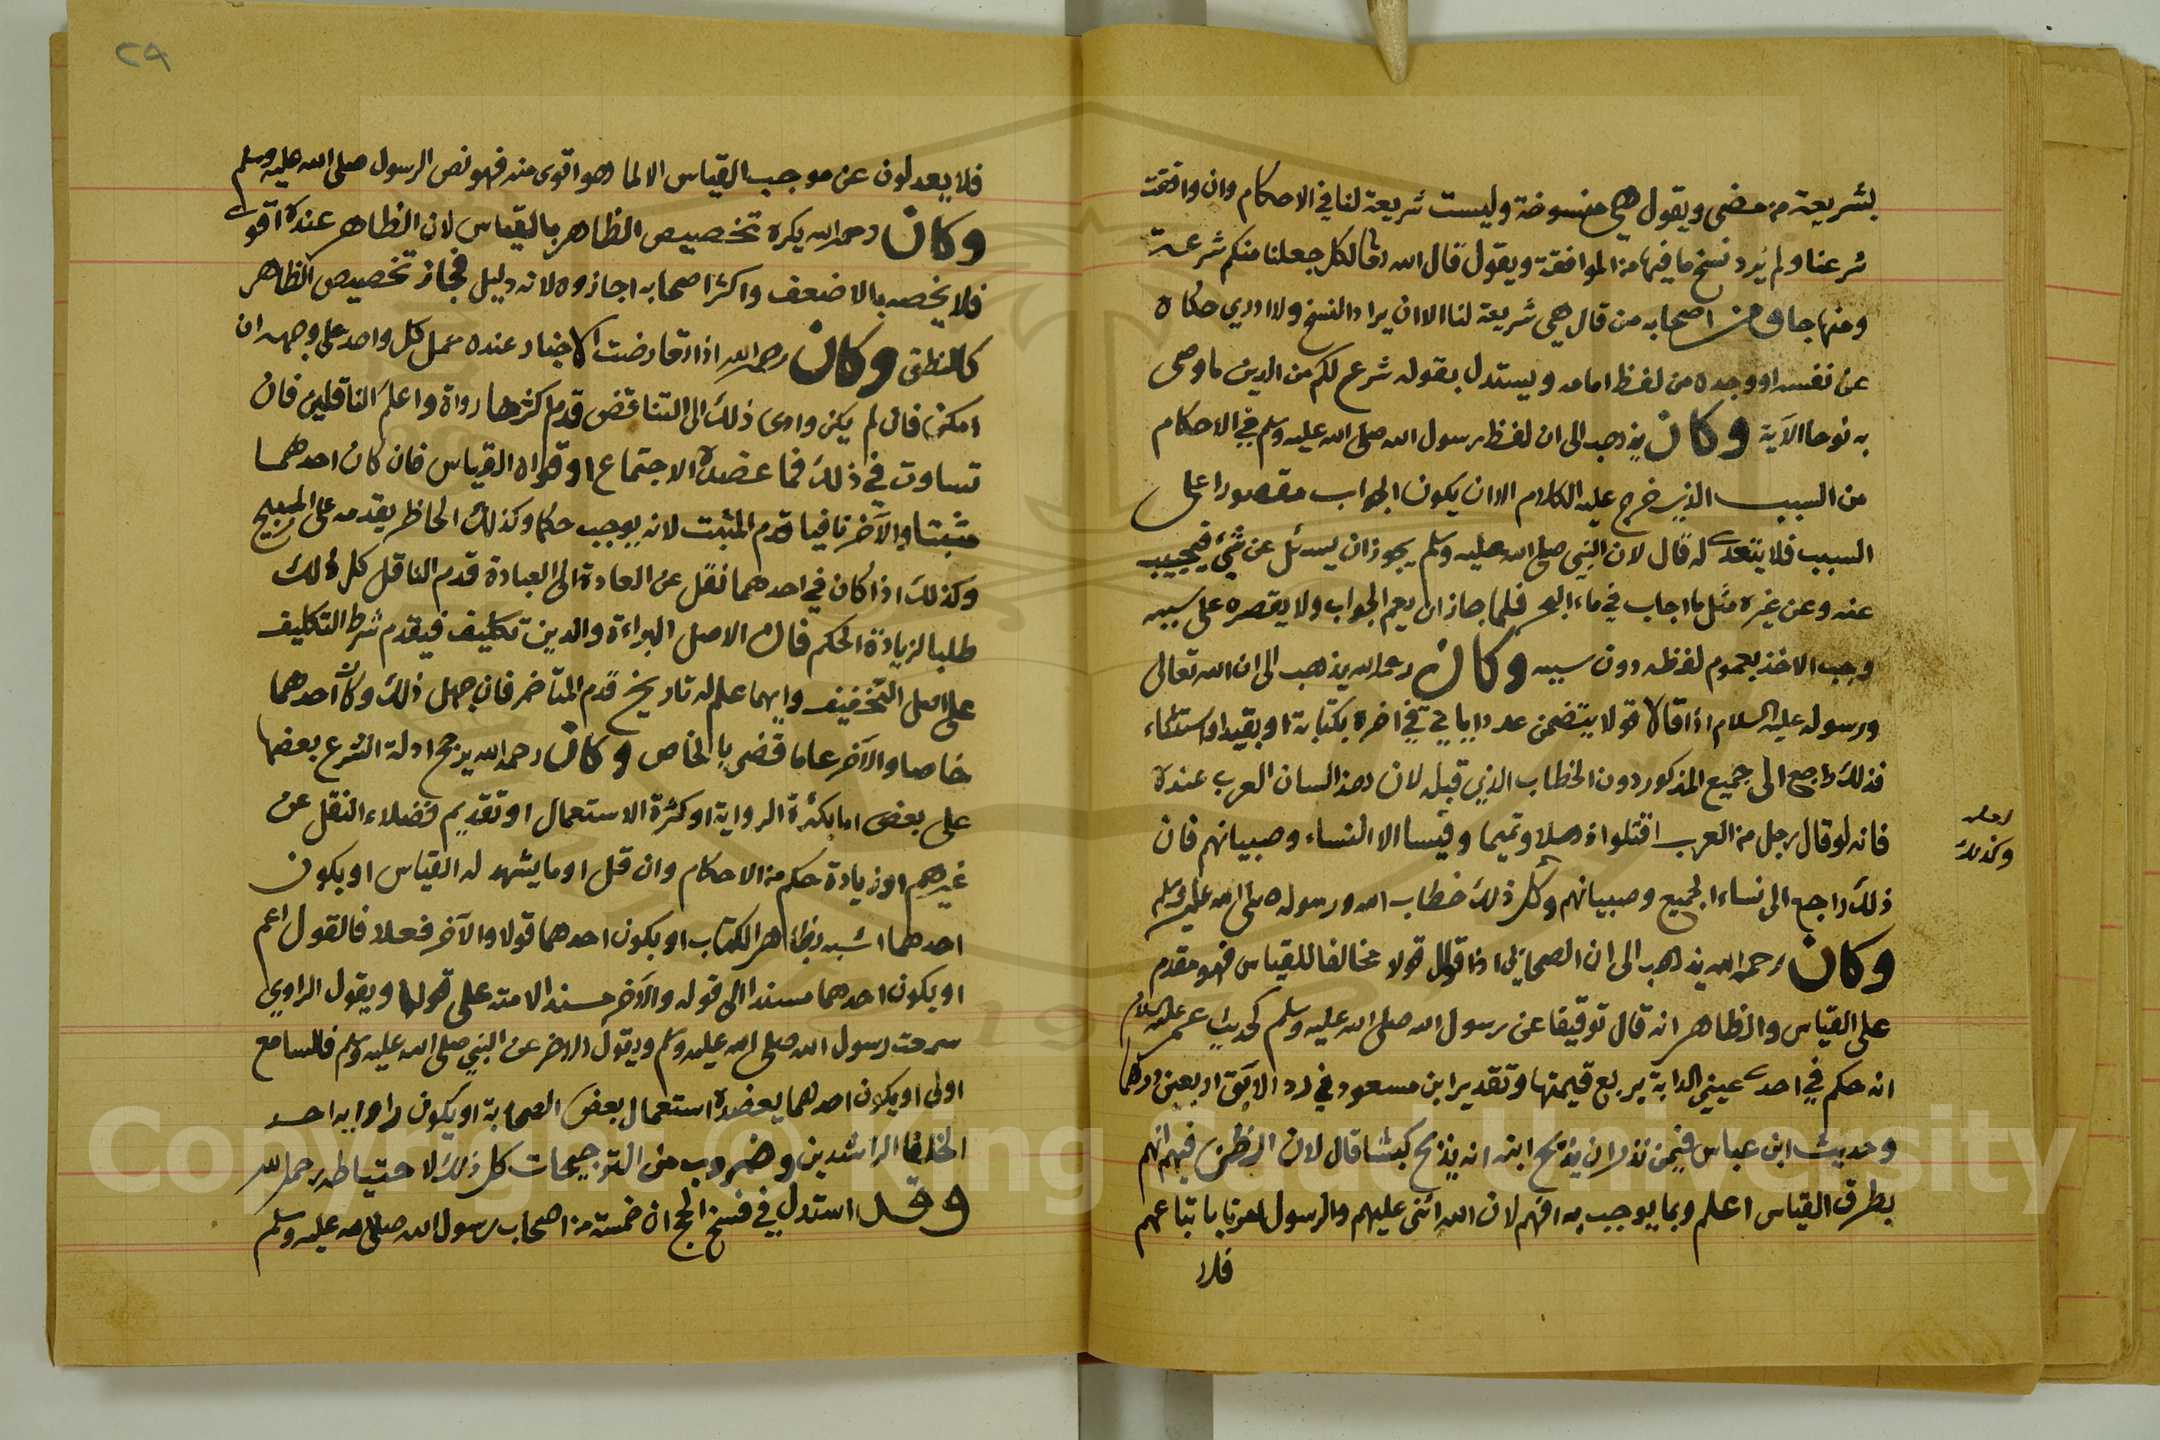 بشريعة من مضى ويقول هي منسوخة وليست شريعة لنا في الاحكام وان وافقت
شرعنا ولم يُرد نسخ ما فيها من الموافقة ويقول قال الله تعالى لكل جعلنا منكم شرعة
ومنهاجا ومن اصحابه من قال هي شريعة لنا الا ان يراد النسخ ولا ادري حكاه
عن نفسه او وجده من لفظ امامه ويستدل بقوله شرع لكم من الدين ما وصى
به نوحا الآية وكان يذهب الى ان لفظ رسول الله صلى الله عليه وسلم في الاحكام
من السبب الذي خرج عليه الكلام الا ان يكون الجواب مقصورا على
السبب فلا يتعدى له قال لان النبي صلى الله عليه وسلم يجوز ان يسئل عن شيء فيجيب
عنه وعن غيره مثل ما اجاب في ماء البحر فلما جاز ان يعم الجواب ولا يقصره على سببه
وجب الاخذ بعموم لفظه دون سببه وكان رحمه الله يذهب الى ان الله تعالى
ورسوله عليه السلام اذا قالا قولا يتضمن عددا ياتي في اخره بكتابة او بقيد او استثناء
فذلك راجع الى جميع المذكور دون الخطاب الذي قبله لان هذا لسان العرب عنده
فانه لو قال رجل من العرب اقتلوا ذهلا وتميما وقيسا الا النساء وصبيانهم فان
ذلك راجع الى نساء الجميع وصبيانهم وكل ذلك خطاب الله ورسوله صلى الله عليه وسلم
لعله
وكذلك
وكان رحمه الله يذهب الى ان الصحابي اذا قال قولا مخالفا للقياس فهو مقدم
على القياس والظاهر انه قال توقيفا عن رسول الله صلى الله عليه وسلم كحديث عمر عليه السلام
انه حكم في احدى عيني الدابة بربع قيمتها وتقدير ابن مسعود في رد الابق اربعين درهما
وحديث ابن عباس فيمن نذر ان يذبح ابنه انه يذبح كبشا قال لان الظن فيهم انهم
بطرق القياس اعلم وبما يوجب به افهم لان الله اثنى عليهم والرسول امرنا باتباعهم
فلا
٢٩
فلا يعدلون عن موجب القياس الا لما هو اقوى منه فهو نص الرسول صلى الله عليه وسلم
وكان رحمه الله يكره تخصيص الظاهر بالقياس لان الظاهر عنده اقوى
فلا يخصه بالاضعف واكثر اصحابه اجازوه لانه دليل فجاز تخصيص الظاهر
كالنطق وكان رحمه الله اذا تعارضت الاخبار عنده عمل كل واحد على وجهه ان
امكن فان لم يكن وادى ذلك الى التناقض قدم اكثرها رواة واعلم الناقلين فان
تساوت في ذلك فما عضده الاجتماع او قواه القياس فان كان احدهما
مثبتا والآخر نافيا قدم المثبت لانه يوجب حكما وكذلك الحاظر يقدمه على المبيح
وكذلك اذا كان في احدهما نقل عن العادة الى العبادة قدم الناقل كل ذلك
طلبا لزيادة الحكم فان الاصل البراءة والدين تكليف فيقدم شرط التكليف
على اصل التخفيف وايهما علم له تاريخ قدم المتاخر فان جهل ذلك وكان احدهما
خاصا والآخر عاما قضى بالخاص وكان رحمه الله يرجح ادلة الشرع بعضها
على بعض اما بكثرة الرواية او كثرة الاستعمال او تقديم فضلاء النقل عن
غيرهم او زيادة حكم من الاحكام وان قل او ما يشهد له القياس او يكون
احدهما اشبه بظاهر الكتاب او يكون احدهما قولا والآخر فعلا فالقول اعم
او يكون احدهما مسندا الى قوله والآخر مسند الامته على قولها ويقول الراوي
سمعت رسول الله صلى الله عليه وسلم ويقول الاخر عن النبي صلى الله عليه وسلم فالسامع
اولى او يكون احدهما يعضده استعمال بعض الصحابة او يكون راوا به احد
الخلفا الراشدين وضروب من الترجيحات كل ذلك لاحتياطه رحمه الله
وقد استدل في فسخ الحج ان خمسة من اصحاب رسول الله صلى الله عليه وسلم
Copyright © King Saud University